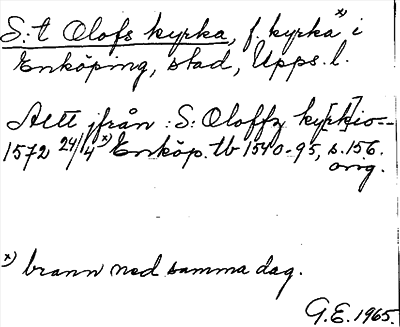 S:t Olofs kyrka, f. kyrka x) i
Enköping, stad, Upps. l.
Allt ifrån: S: Oloffz ky[rk]io--
1572 24/4 x) Enköp. tb 1540-95, s. 156.
orig.
x) brann ned samma dag.
G.E. 1965.